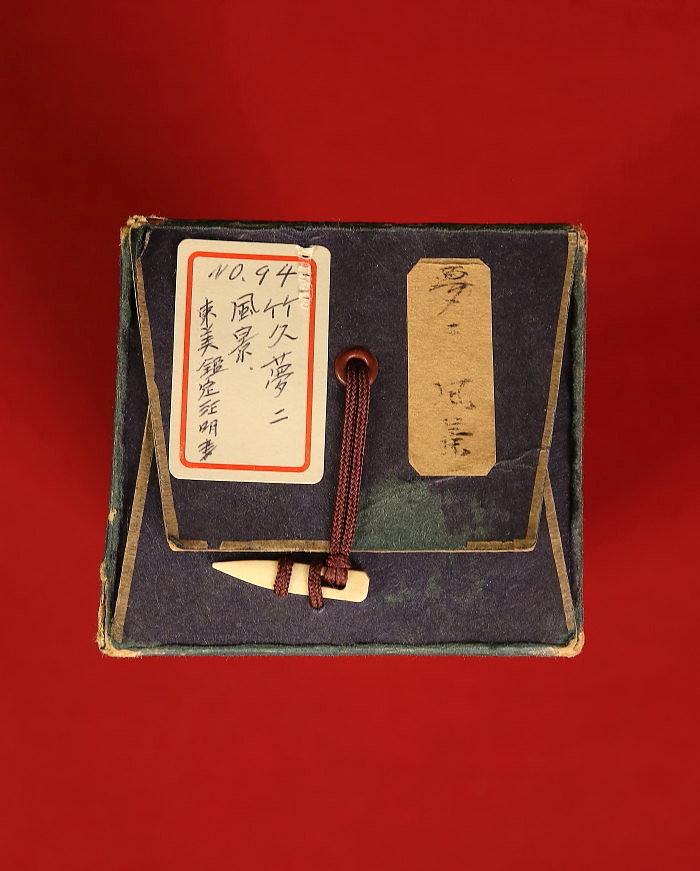 夢二 風景
NO.94
竹久夢二
風景.
東美鑑定証明書